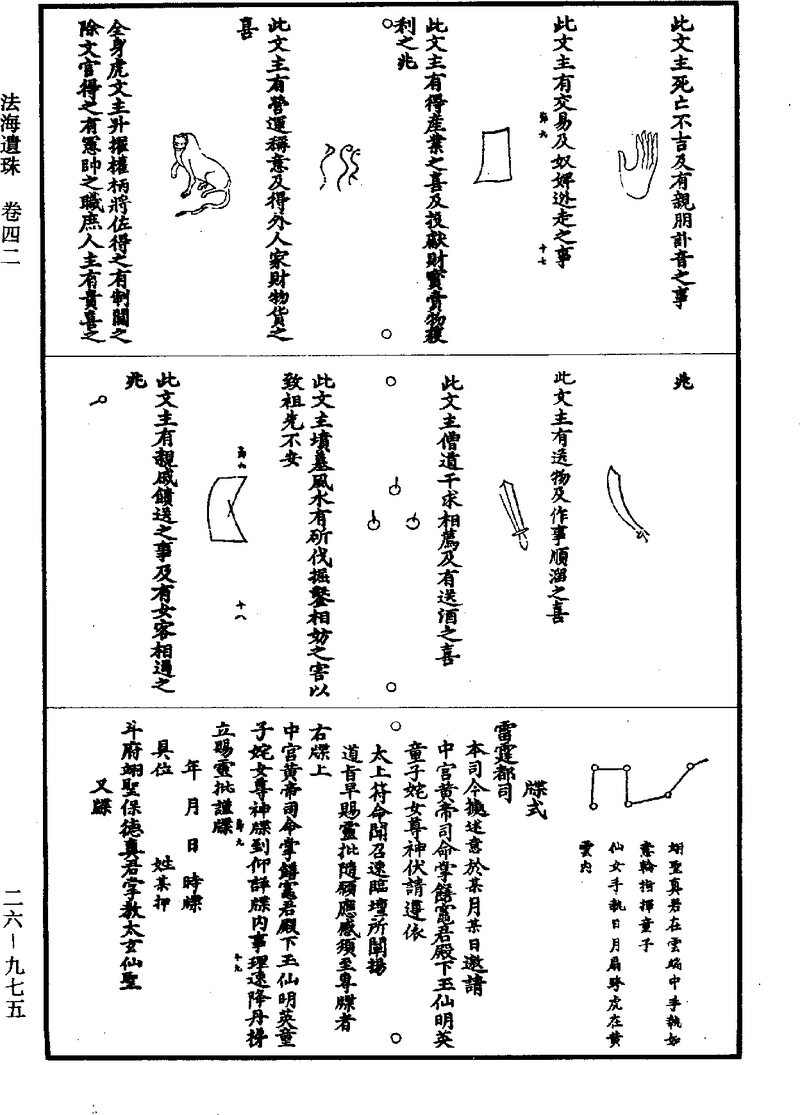 此文主死亡不吉及有親朋訃音之事
此文主有交易及奴婢逃走之事
第九
十七
此文主有得產業之喜及投獻財寶膏物獲
利之兆
此文主有營運稱意及得外人家財物貨之
喜
全身虎文主升擢權柄將佐得之有制閫之
除文官得之有憲帥之職庶人主有貴喜之
兆
此文主有送物及作事順溜之喜
此文主僧道干求相薦及有送酒之喜
此文主墳墓風水有斫伐掘鑿相妨之害以
致祖先不安
第九
十八
此文主有親戚饋送之事及有女客相過之
兆
翊聖真君在雲端中手執如
意輪指揮童子
仙女手執日月扇時虎在黃
雲內
牒式
雷霆都司
本司今據述意於某月某日邀請
中宮黃帝司命掌饍竈君殿下玉仙明英
童子姹女尊神伏請遵依
太上符命聞召速臨壇所闡揚
道旨早賜靈批隨願應感須至專牒者
右牒上
中宮黃帝司命掌饍竈君殿下玉仙明英童
子姹女尊神牒到仰詳牒內事理速降丹悃
立賜靈批謹牒
第九
十九
年 月 日 時牒
具位 姓某押
又牒
斗府翊聖保德真君字教太玄仙聖
法海遺珠 卷四二
二六－九七五